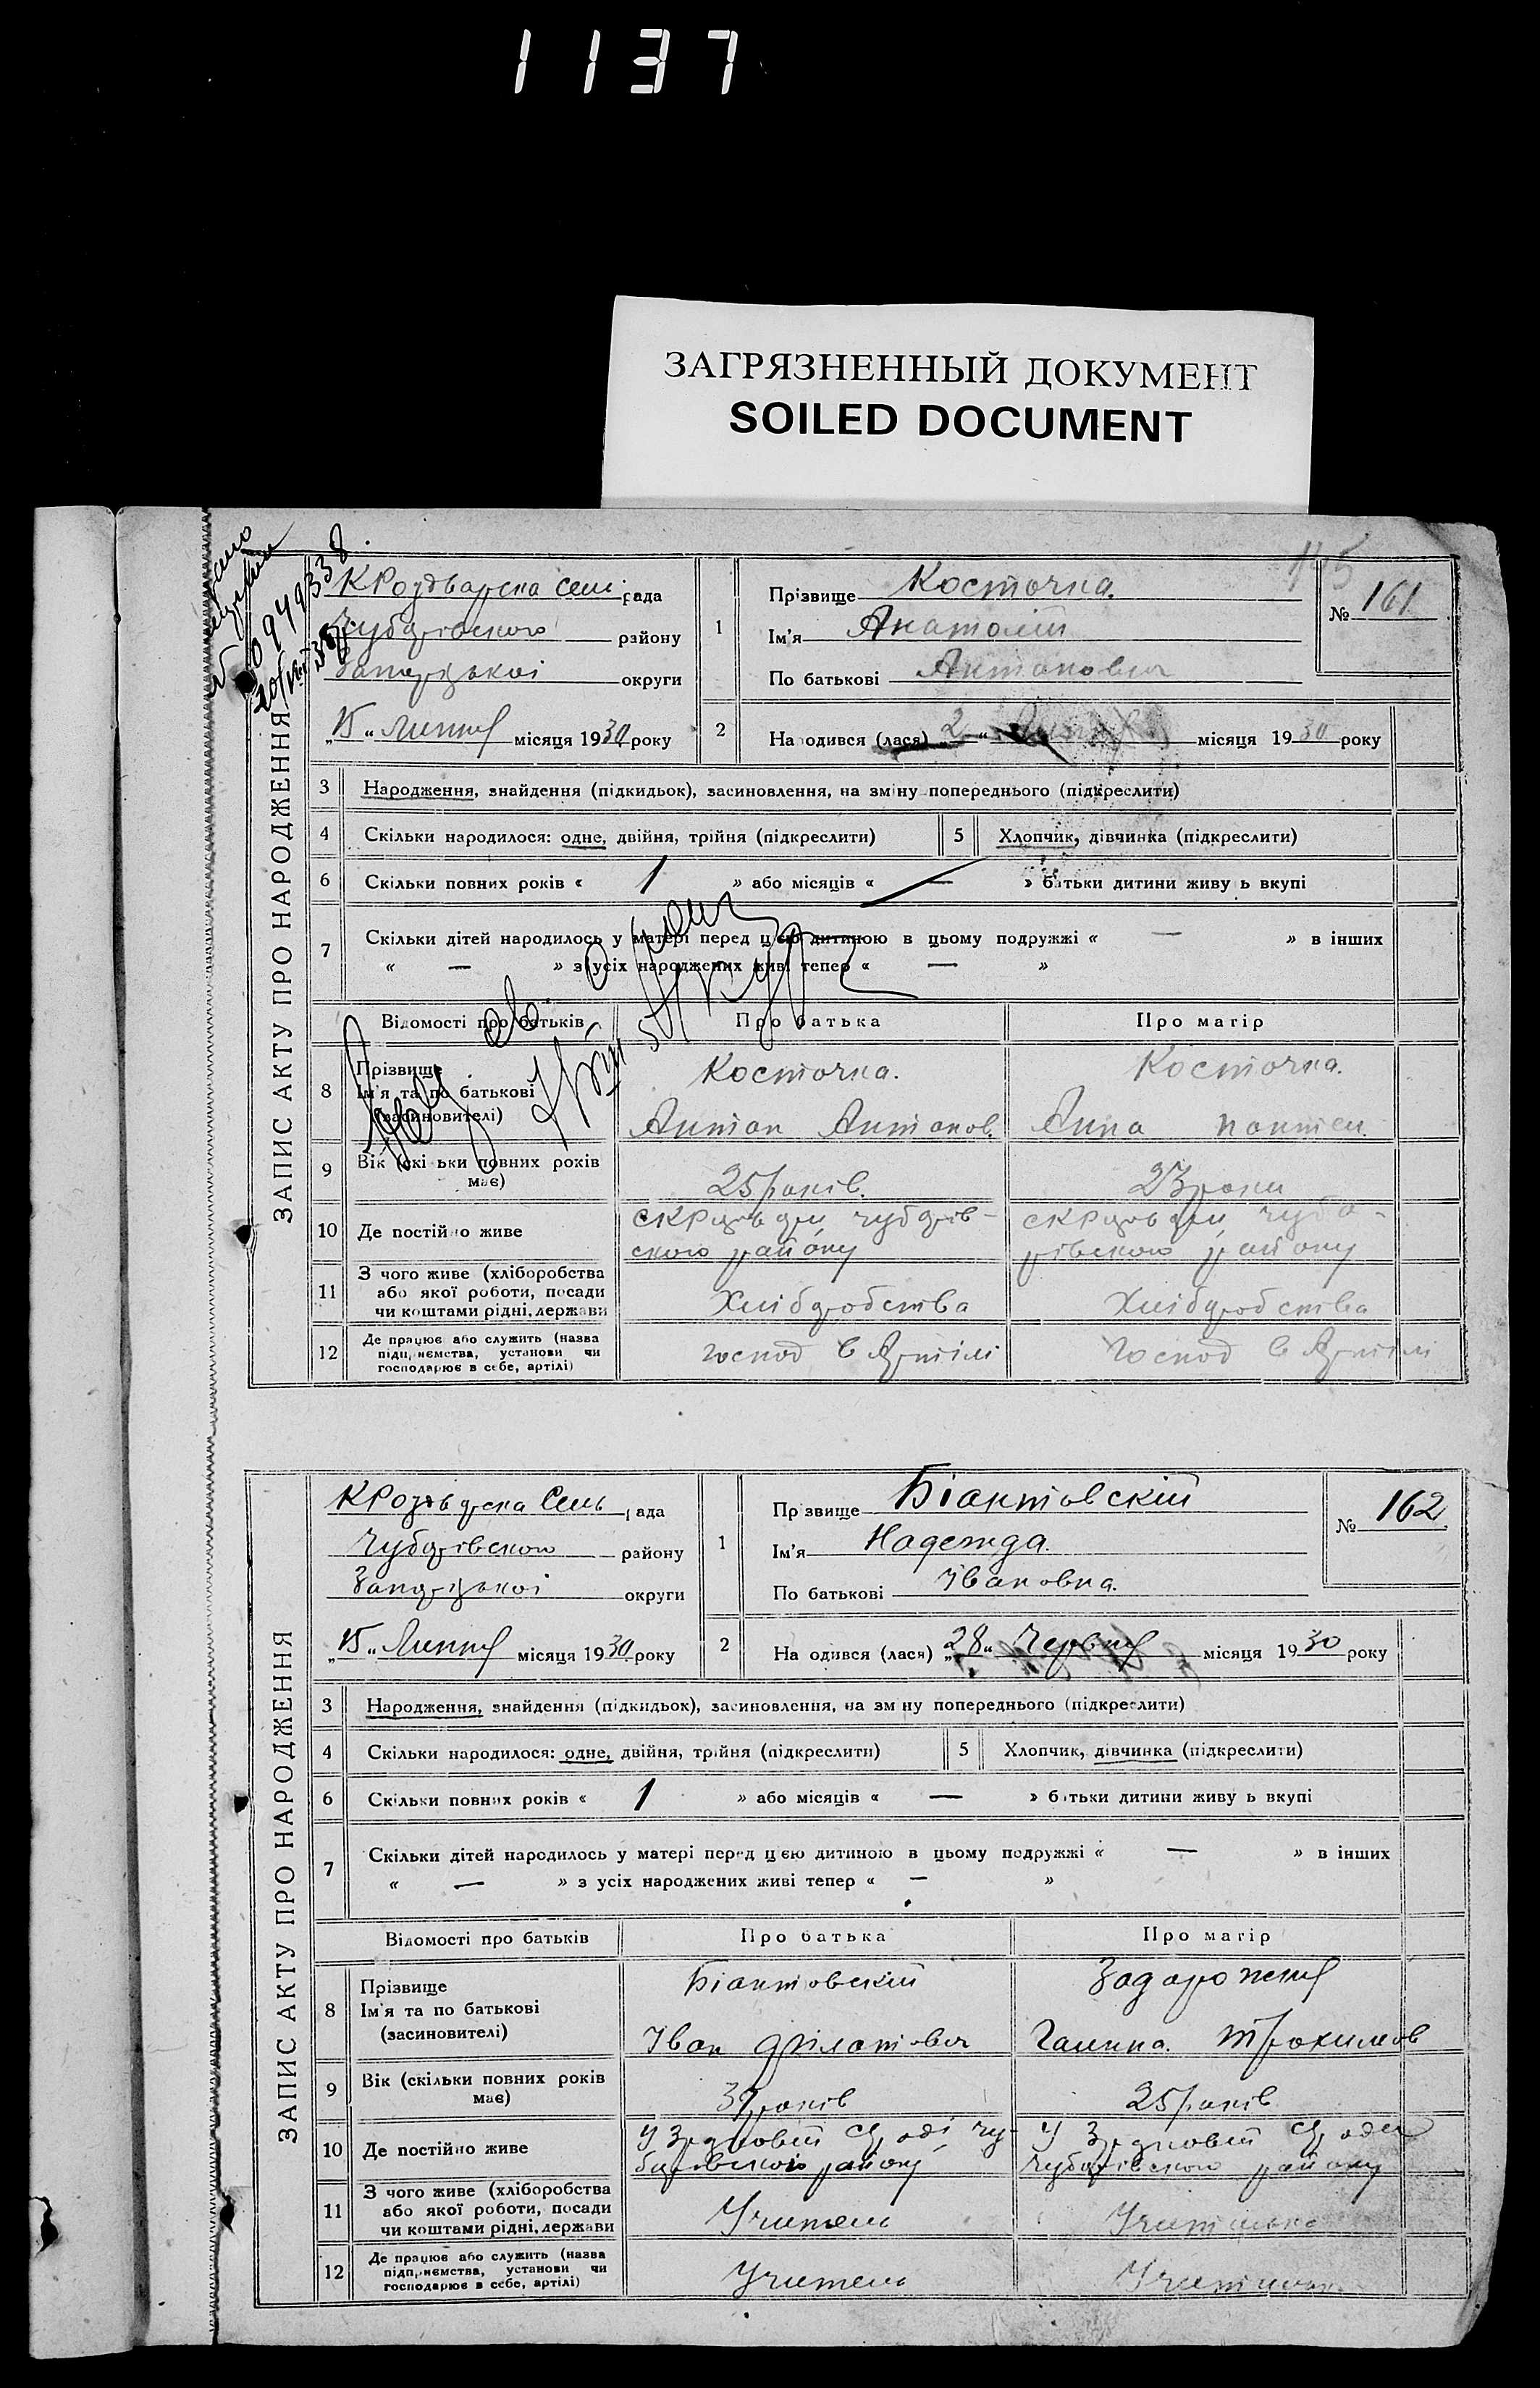 1137
ЗАГРЯЗНЕННЫЙ ДОКУМЕНТ
SOILED DOCUMENT
145
ЗАПИС АКТУ ПРО НАРОДЖЕННЯ
рада
Чубарівского району
Запорізькоі округи
„15“ Липня місяця 1930 року
1
Прізвище Косточка.
Ім'я Анатолій
По батькові Антонович
№ 161
2
Народився (лася) „2“ місяця 1930 року
3 Народження, знайдення (підкидьок), засиновлення, на зміну попереднього (підкреслити)
4 Скільки народилося: одне, двійня, трійня (підкреслити)
5 Хлопчик, дівчинка (підкреслити)
6 Скільки повних років « 1 » або місяців « — » батьки дитини живуть вкупі
7 Скільки дітей народилось у матері перед цією дитиною в цьому подружжі « — » в інших
« — » з усіх народжених живі тепер « — »
Відомості про батьків Про батька Про матір
8 Прізвище Косточка. Косточка.
Ім'я та по батькові
(засиновителі) Антон Антонов. Анна
9 Вік (скільки повних років має) 25 років. 23 роки
10 Де постійно живе чубарів-
ского району рівского району
11 З чого живе (хліборобства
або якої роботи, посади
чи коштами рідні, держави Хліборобства Хліборобства
12 Де працює або служить (назва
підприємства, установи чи
господарює в себе, артілі) господ в Артілі господ в Артілі
ЗАПИС АКТУ ПРО НАРОДЖЕННЯ
рада
Чубарівского району
Запорізькоі округи
„15“ Липня місяця 1930 року
1
Прізвище Біантовскій
Ім'я Надежда.
По батькові Івановна.
№ 162
2
Народився (лася) „28“ Червня місяця 1930 року
3 Народження, знайдення (підкидьок), засиновлення, на зміну попереднього (підкреслити)
4 Скільки народилося: одне, двійня, трійня (підкреслити)
5 Хлопчик, дівчинка (підкреслити)
6 Скільки повних років « 1 » або місяців « — » батьки дитини живуть вкупі
7 Скільки дітей народилось у матері перед цією дитиною в цьому подружжі « — » в інших
« — » з усіх народжених живі тепер « — »
Відомості про батьків Про батька Про матір
8 Прізвище Біантовскій
Ім'я та по батькові
(засиновителі) Іван Філатович Галина. Трохимов
9 Вік (скільки повних років має) років 25 років
10 Де постійно живе У чу-
барівского району Чубарівского району
11 З чого живе (хліборобства
або якої роботи, посади
чи коштами рідні, держави Учитель Учителька
12 Де працює або служить (назва
підприємства, установи чи
господарює в себе, артілі) Учитель